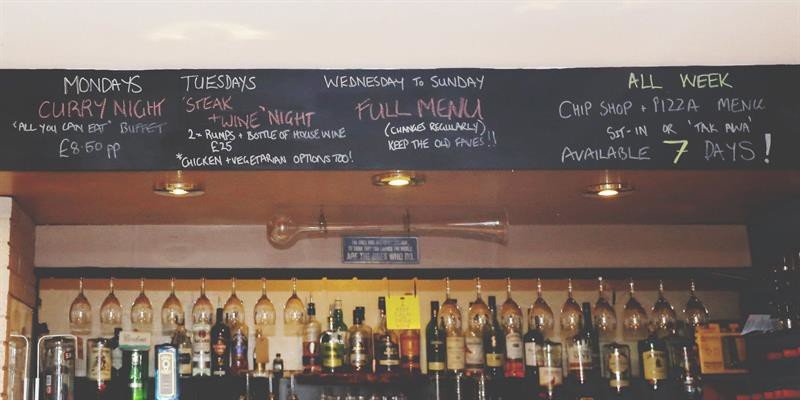 MONDAYS
CURRY NIGHT
"ALL YOU CAN EAT" BUFFET
£8.50 pp
TUESDAYS
'STEAK
+ WINE' NIGHT
2 RUMPS + BOTTLE OF HOUSE WINE
£25
*CHICKEN + VEGETARIAN OPTIONS TOO!
WEDNESDAY TO SUNDAY
FULL MENU
(CHANGES REGULARLY)
KEEP THE OLD FAVES!!
ALL WEEK
CHIP SHOP + PIZZA MENU
SIT-IN OR 'TAK AWA'
AVAILABLE 7 DAYS!
ARE THE ONES WHO DO.